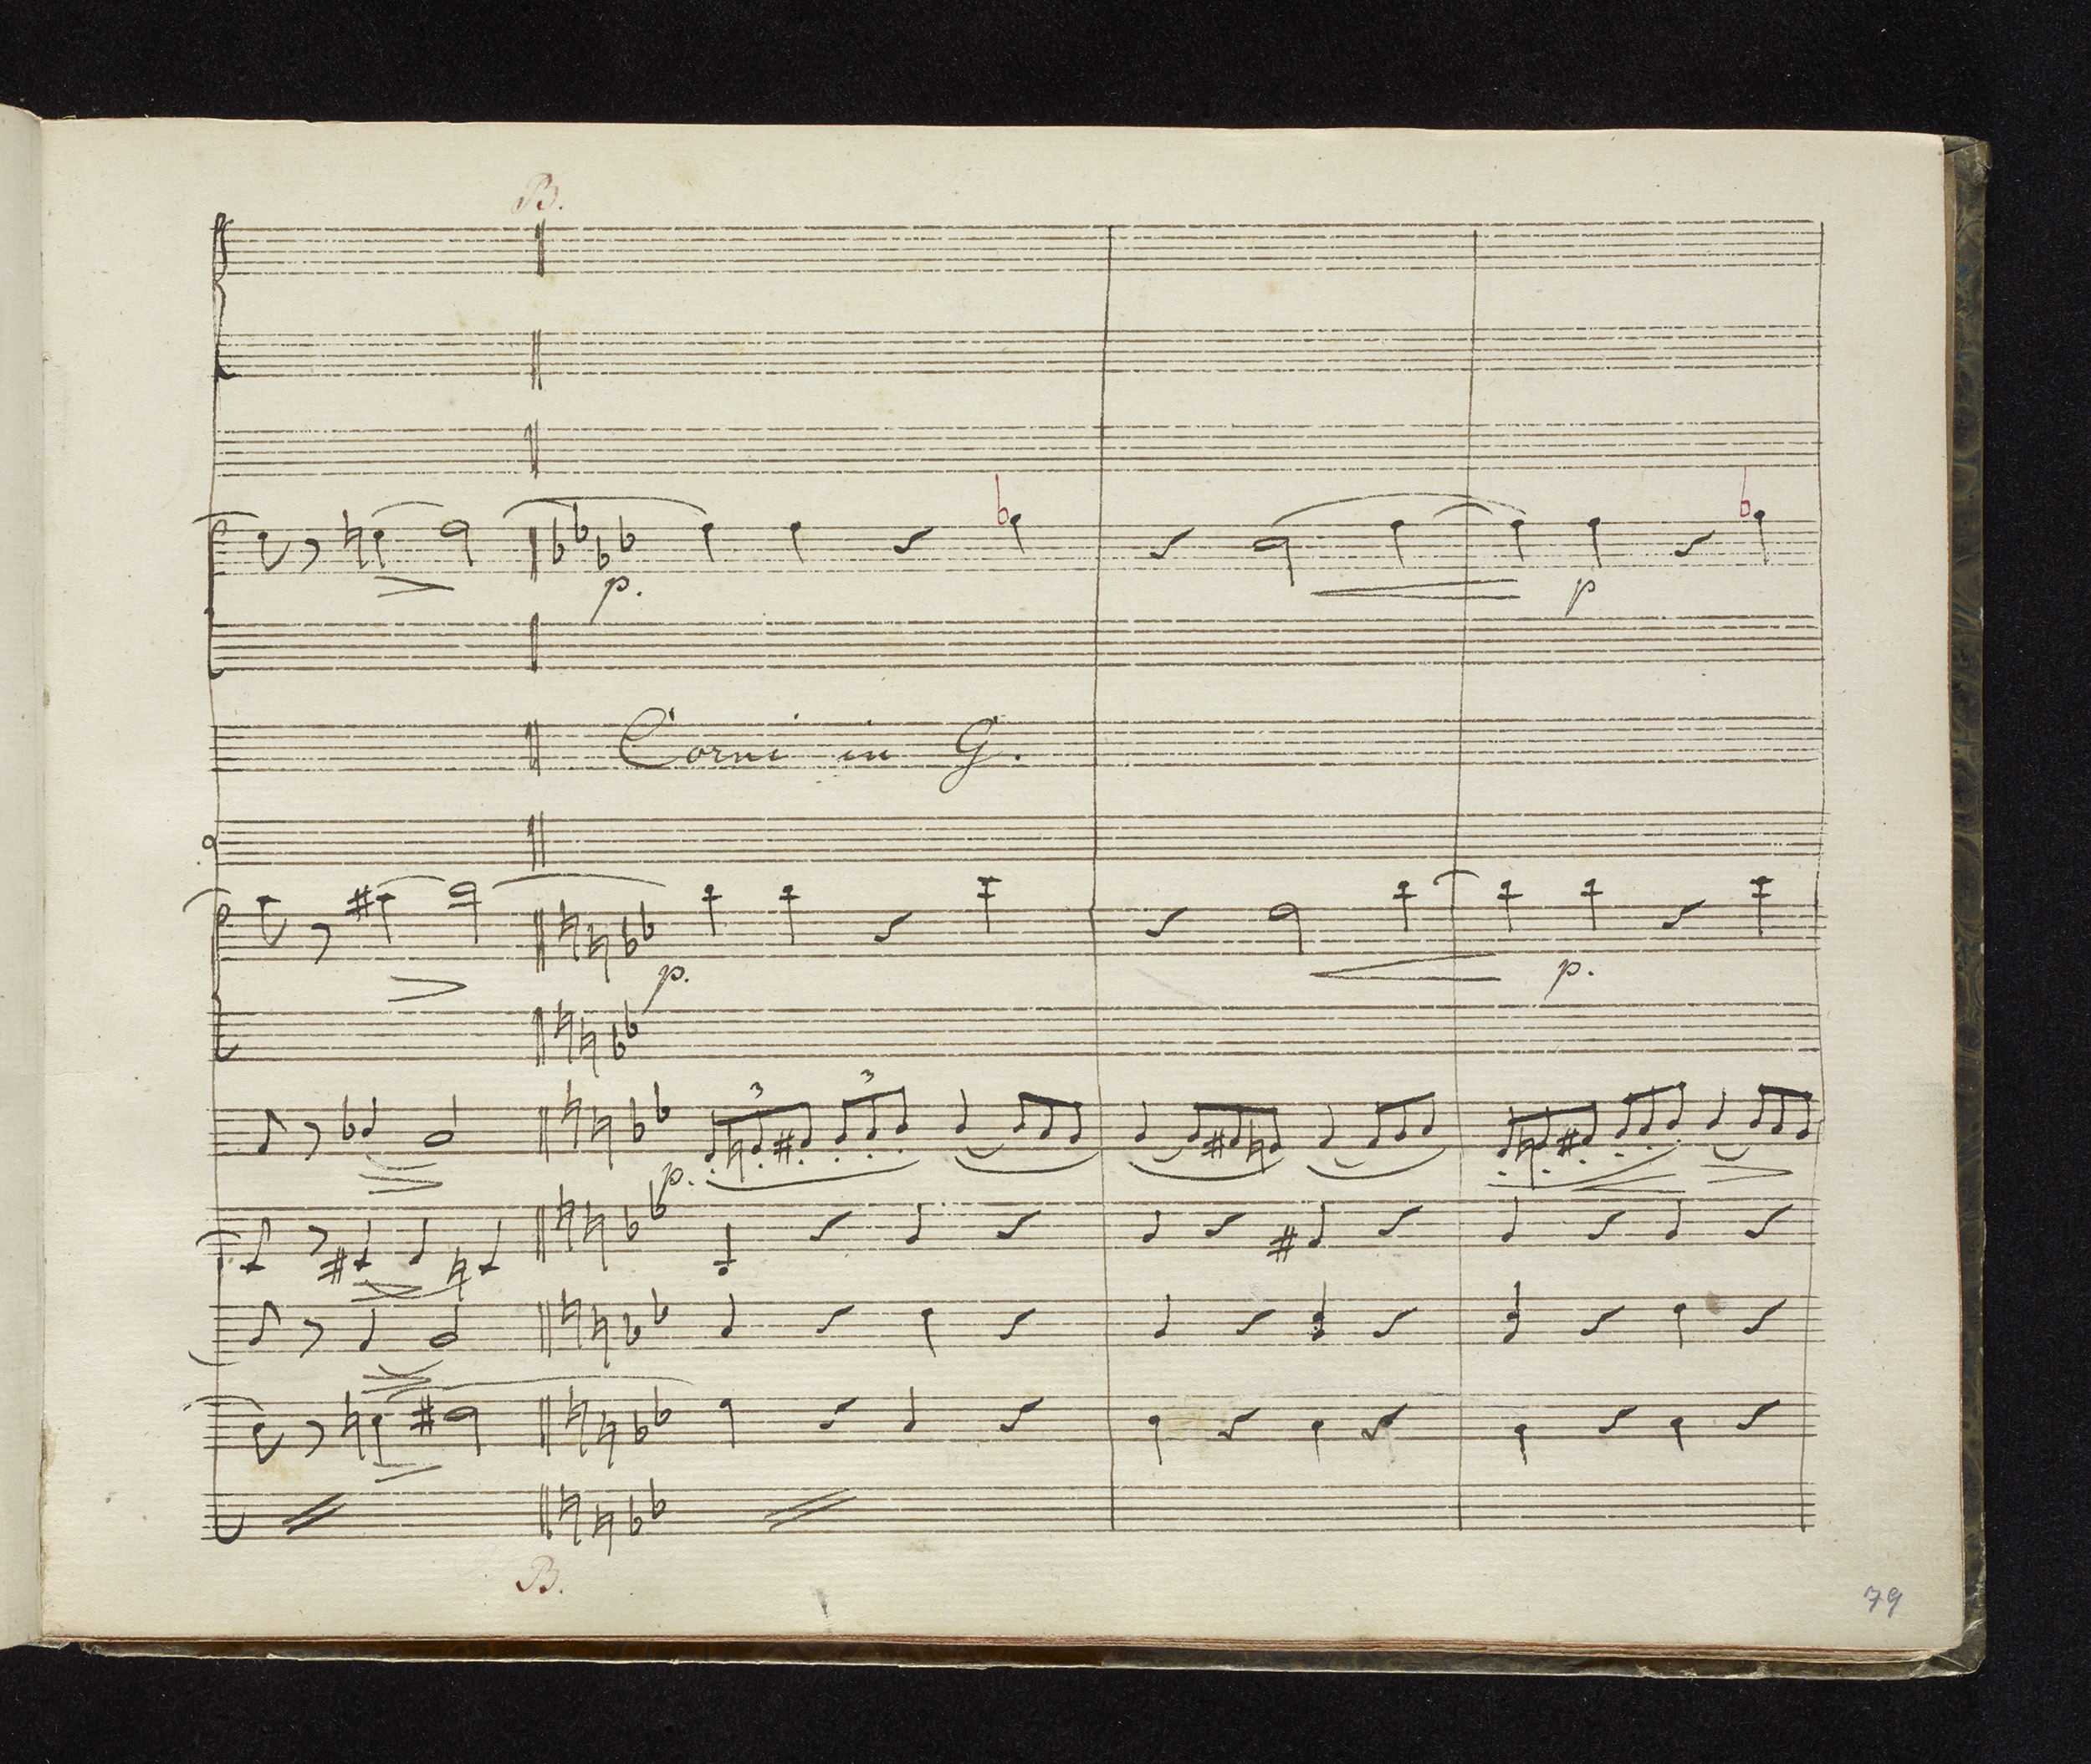 B.
p.
p
Corni in G.
p.
p.
3 3
p.
B.
79